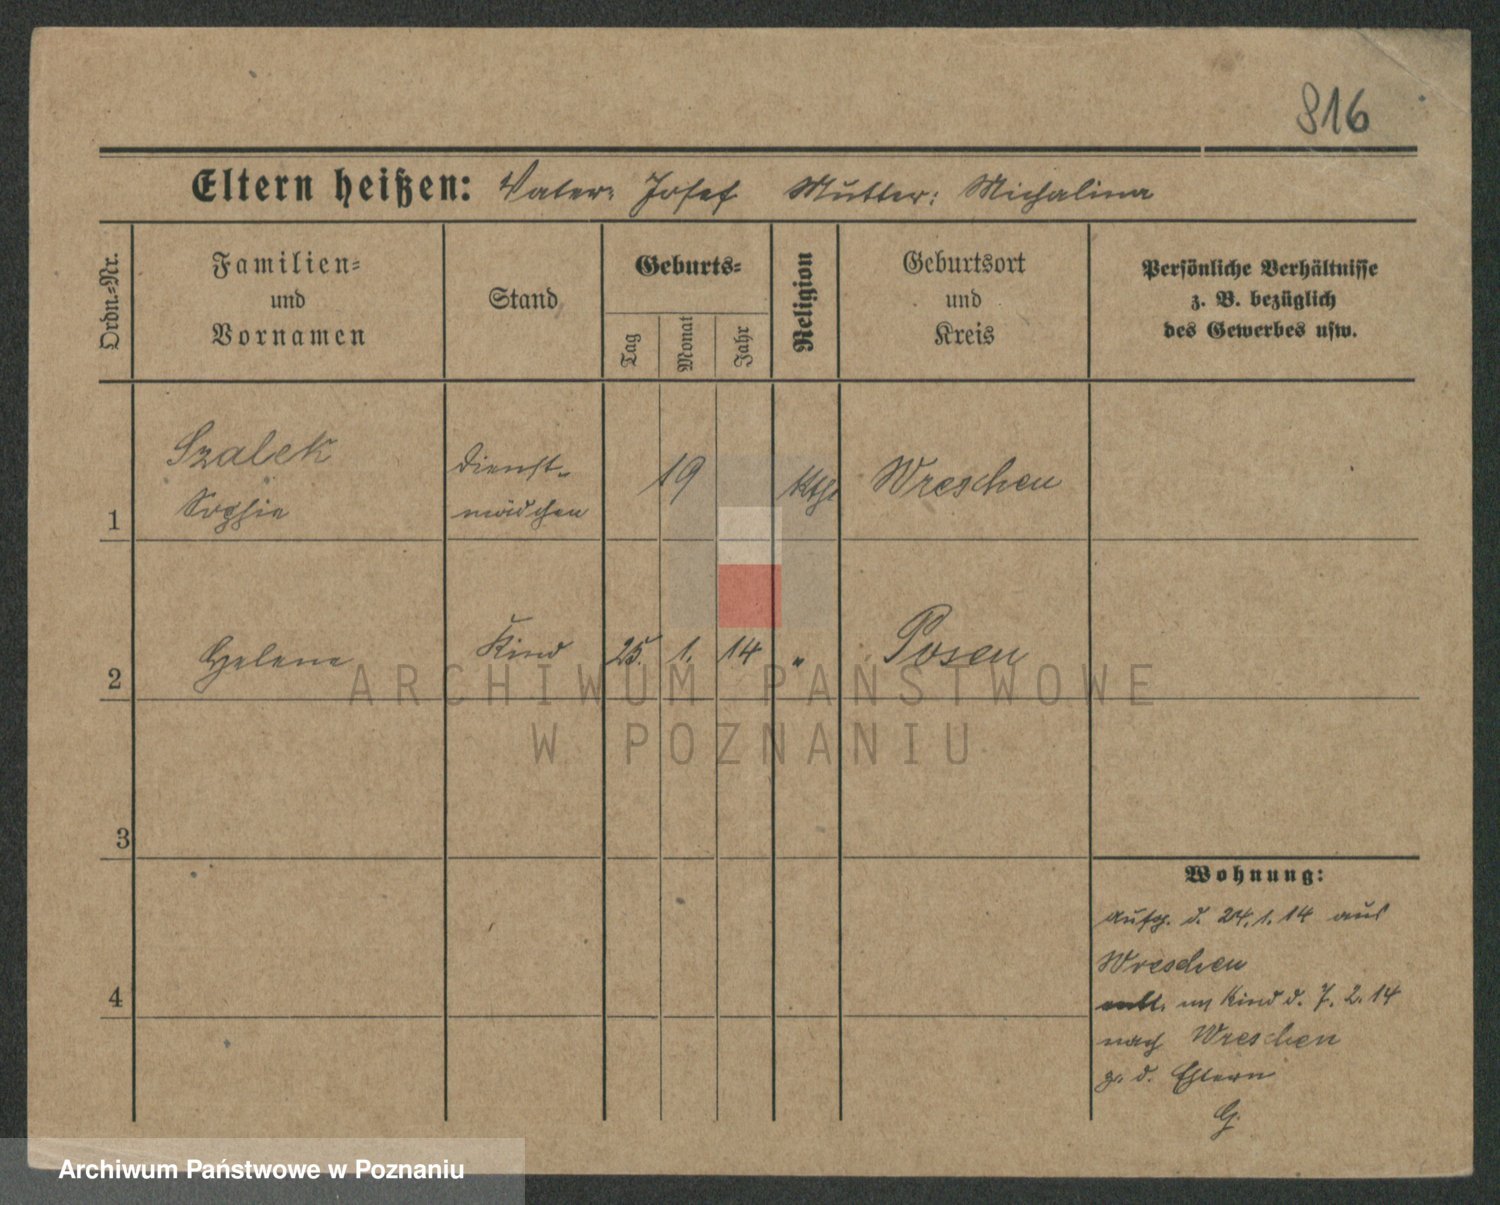 816
Eltern heißen: Vater: Josef Mutter: Michalina
Ordn.-Nr.
Familien-
und
Vornamen
Stand
Geburts-
Tag
Monat
Jahr
Religion
Geburtsort
und
Kreis
Persönliche Verhältnisse
z. B. bezüglich
des Gewerbes usw.
Szalek
Sophie
Dienst-
mädchen
19
kth
Wreschen
1
Helene
Kind
25. 1. 14
"
Posen
2
ARCHIWUM PAŃSTWOWE
W POZNANIU
3
Wohnung:
aufg. d. 24.1.14 aus
Wreschen
Kind d. 7.2.14
nach Wreschen
z. d. Eltern
G.
4
Archiwum Państwowe w Poznaniu